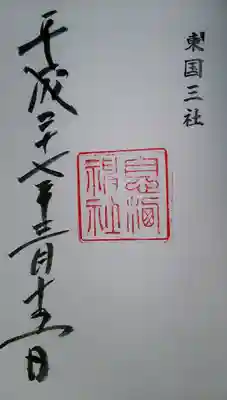 東国三社
息洲神社
平成二十七年三月十五日